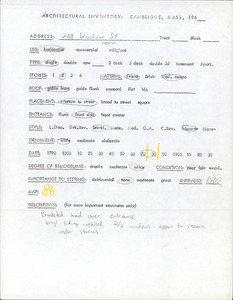 ARCHITECTURAL INVENTORY: CAMBRIDGE, MASS, 196
ADDRESS: 288 St Tract Block
USE: residential commercial religious
TYPE: single double row 2 deck 3 deck double 3d tenement Apart.
STORIES: 1 2 3 4 MATERIAL: frame brick
ROOF: gable front gable flank mansard flat hip
PLACEMENT: narrow to street broad to street square
ENTRANCE: flank front center
STYLE: Mans. Q.A. None
ORNAMENT: moderate elaborate
DATE: 1790 1800 10 20 30 40 50 60 70 80 90 1900 10 20 30
DEGREE OF REMODELING: drastic moderate minor CONDITION: poor fair good
IMPORTANCE TO SETTING: detrimental none moderate great INITIALED
MAP: 86
DESCRIPTION: (for more important structures only)
Bracketed hood over entrance
Vinyl siding installed, 2/2 windows appear to remain
under storms